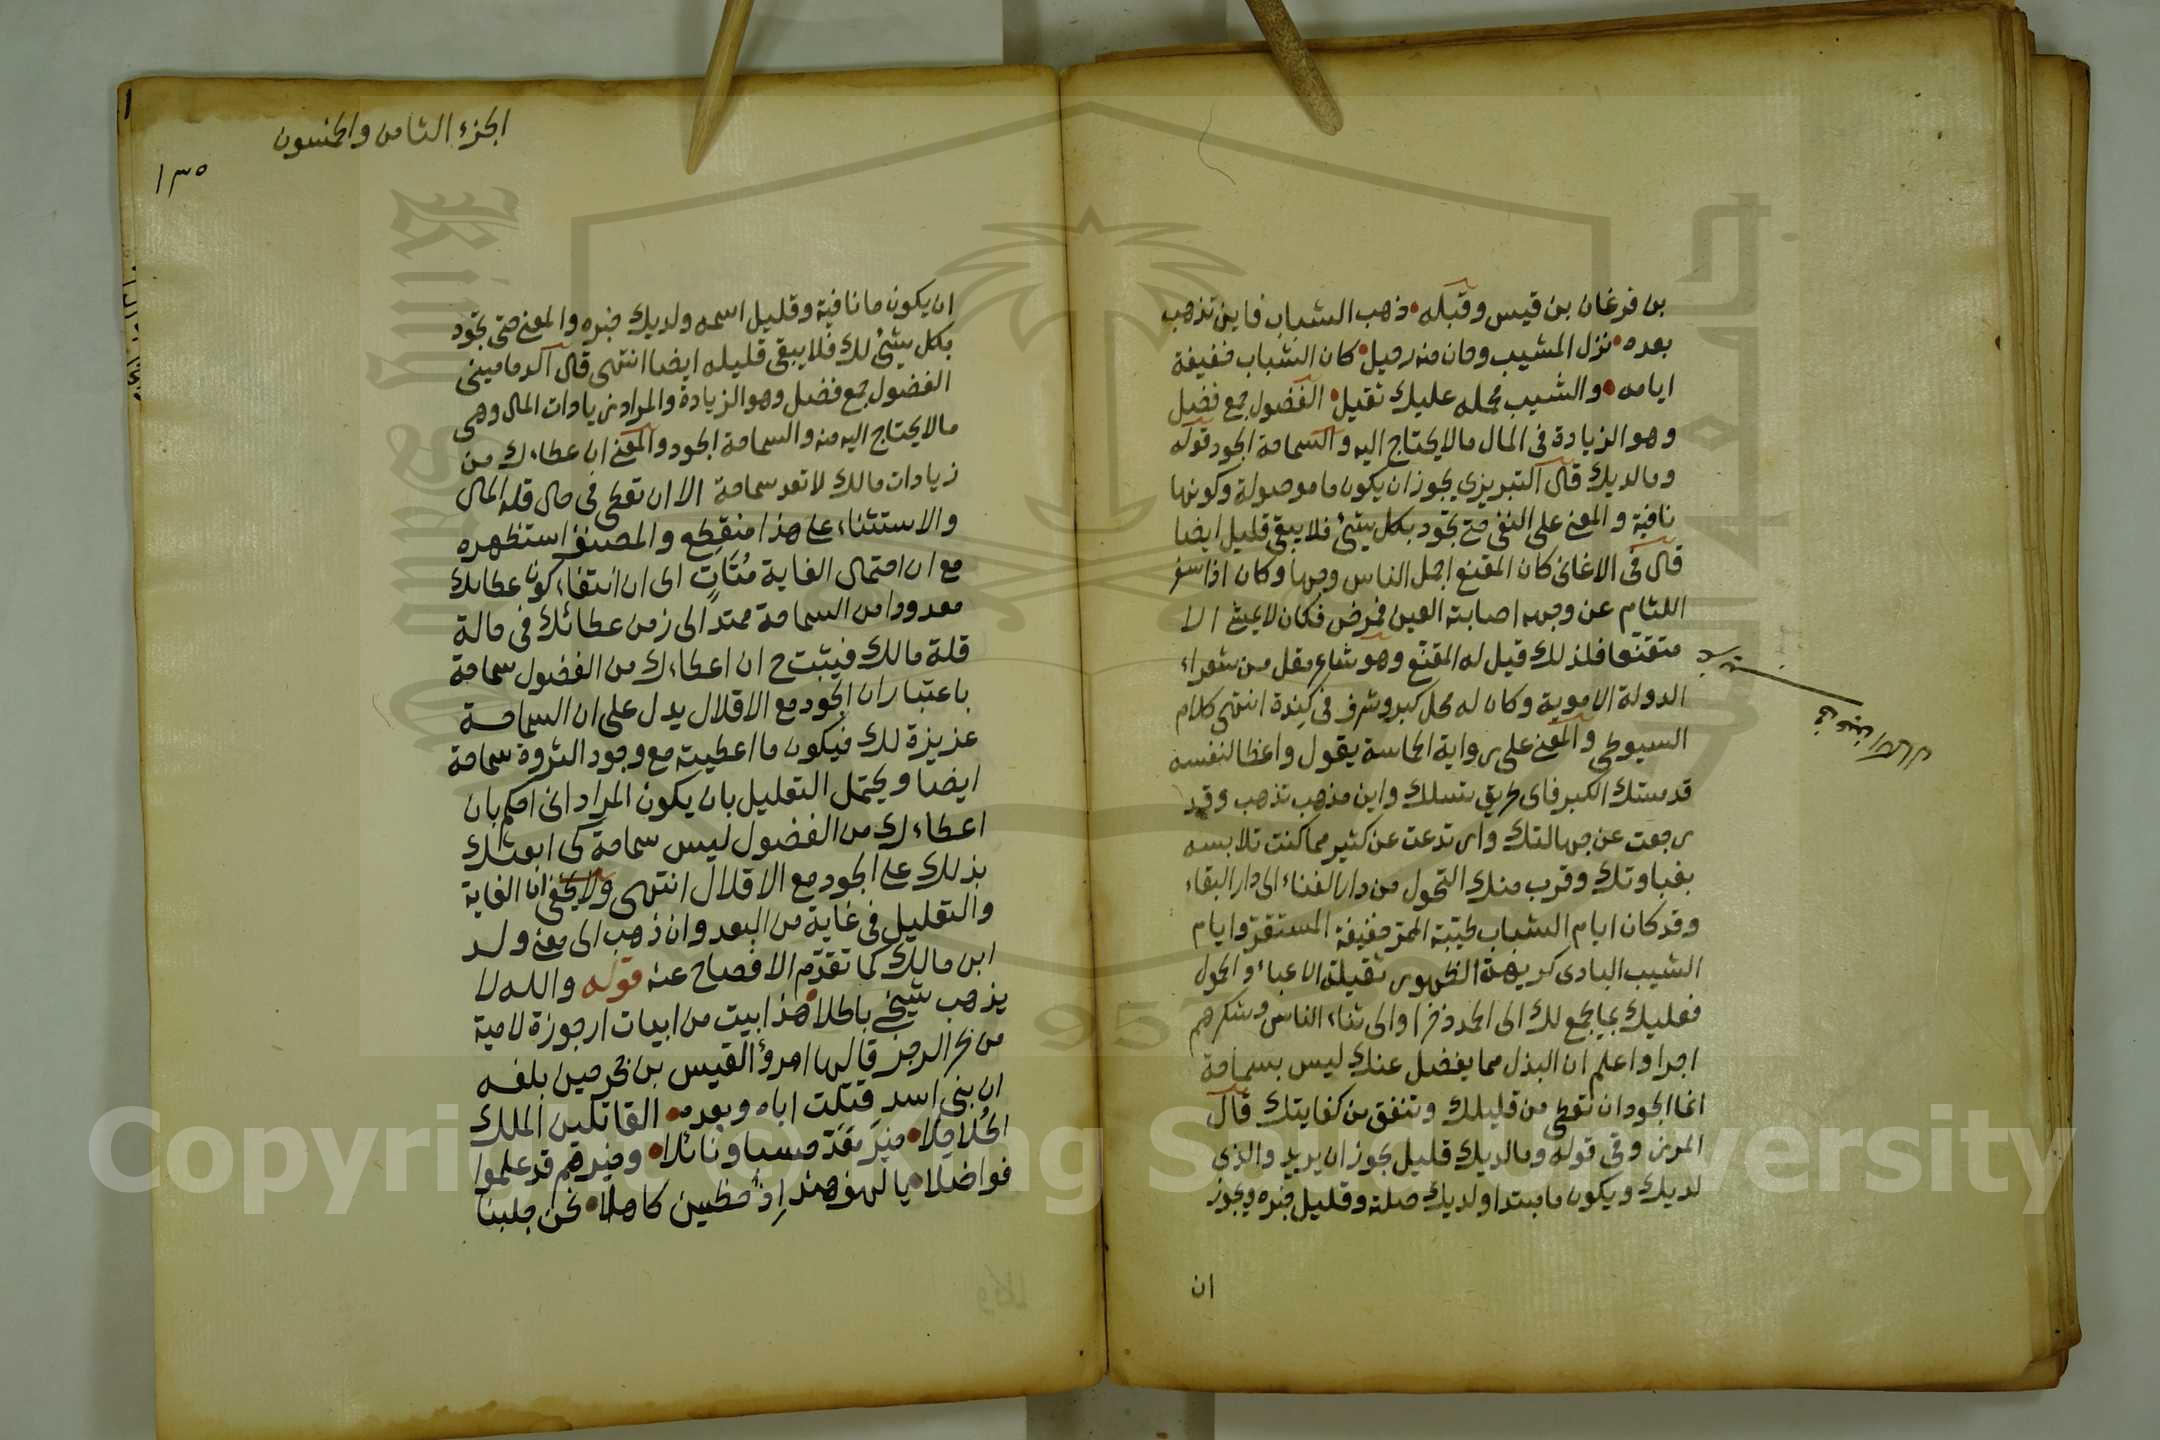 بن فرغان بن قيس وقبله • ذهب الشباب فاين تذهب
بعده • نزل المشيب وحان منه رحيل • كان الشباب خفيفة
ايامه • والشيب محمله عليك ثقيل • الفضول جمع فضل
وهو الزيادة فى المال مالا يحتاج اليه والسماحة الجود قوله
وما لديك قال التبريزي يجوز ان يكون ما موصولة وكونها
نافية والمعنى على النفى حتى تجود بكل شئ فلا يبقى قليل ايضا
قال فى الاغانى كان المقنع اجمل الناس وجها وكان اذا سفر
اللثام عن وجهه اصابته العين فمرض فكان لا يمشى الا
متقنعا فلذلك قيل له المقنع وهو شاعر مقل من شعراء
الدولة الاموية وكان له محل كبير وشرف فى كندة انتهى كلام
السيوطى والمعنى على رواية الحماسة يقول واعظا لنفسه
قد مسك الكبر فاى طريق تسلك واين مذهب تذهب وقد
رجعت عن جهالتك وارتدعت عن كثير مما كنت تلابسه
بغباوتك وقرب منك التحول من دار الفناء الى دار البقاء
وقد كان ايام الشباب طيبة الممر خفيفة المستقر وايام
الشيب البادى كريهة الظهور ثقيلة الاعباء والحمول
فعليك بما يجمع لك الى الحمد ذخرا والى ثناء الناس وشكرهم
اجرا واعلم ان البذل مما يفضل عنك ليس بسماحة
انما الجود ان تعطى من قليلك وتنفق من كفايتك قال
المرزوقى قوله وما لديك قليل يجوز ان يريد والذى
لديك ويكون ما مبتدا ولديك صلته وقليل خبره ويجوز
ان
الجزء الثامن والخمسون
١٣٥
ان يكون ما نافية وقليل اسمه ولديك خبره والمعنى حتى تجود
بكل شئ لك فلا يبقى قليله ايضا انتهى قال الدمامينى
الفضول جمع فضل وهو الزيادة والمراد زيادات المال وهى
مالا يحتاج اليه منه والسماحة الجود والمعنى ان عطاءك من
زيادات مالك لا تعد سماحة الا ان تعطى فى حال قلة المال
والاستثناء على هذا منقطع والمصنف استظهره
مع ان احتمال الغاية متأت اى ان انتفاء كون عطائك
معدودا من السماحة ممتد الى زمن عطائك فى حالة
قلة مالك فيثبت ح ان اعطاءك من الفضول سماحة
باعتبار ان الجود مع الاقلال يدل على ان السماحة
عزيزة لك فيكون ما اعطيته مع وجود الثروة سماحة
ايضا ويحتمل التعليل بان يكون المراد انى احكم بان
اعطاءك من الفضول ليس سماحة كى ابعثك
بذلك على الجود مع الاقلال انتهى ولا يخفى ان الغاية
والتعليل فى غاية من البعد وان ذهب الى معنى ولد
ابن مالك كما تقدم الافصاح عنه قوله والله لا
يذهب شيخى باطلا • هذا بيت من ابيات ارجوزة لامية
من بحر الرجز قالها امرؤ القيس بن حجر حين بلغه
ان بنى اسد قتلت اباه وبعده • القاتلين الملك
الحلاحلا • خير معد حسبا ونائلا • وخيرهم قد علموا
فواضلا • يا لهف هند اذ خطئن كاهلا • نحن جلبنا